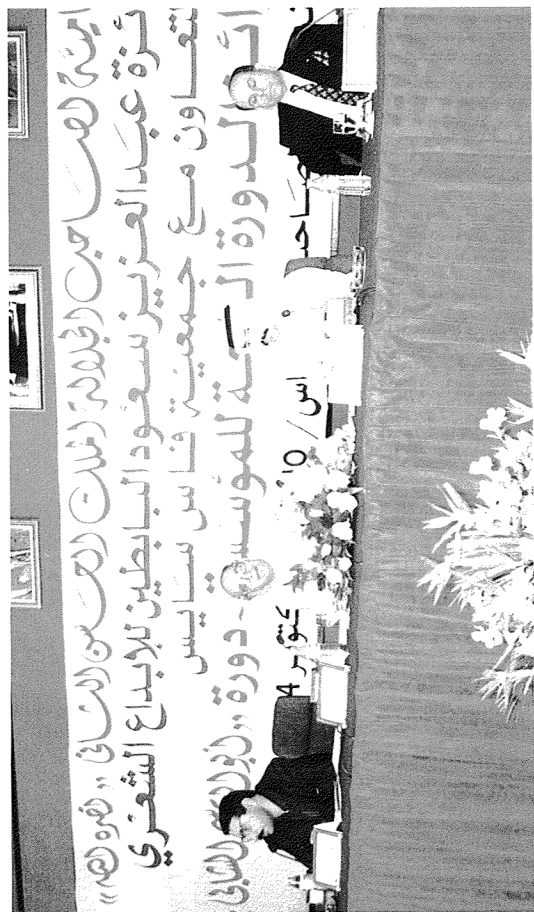 امية لصاحب الجلالة الملك الحسن الثاني « نصره الله »
ئزة عبد العزيز سعود البابطين للإبداع الشعري
لتعاون مع جمعية فاس سايس
ائز الدورة الـ عة للمؤسسـ - دورة الشابي
اس / كتوبر